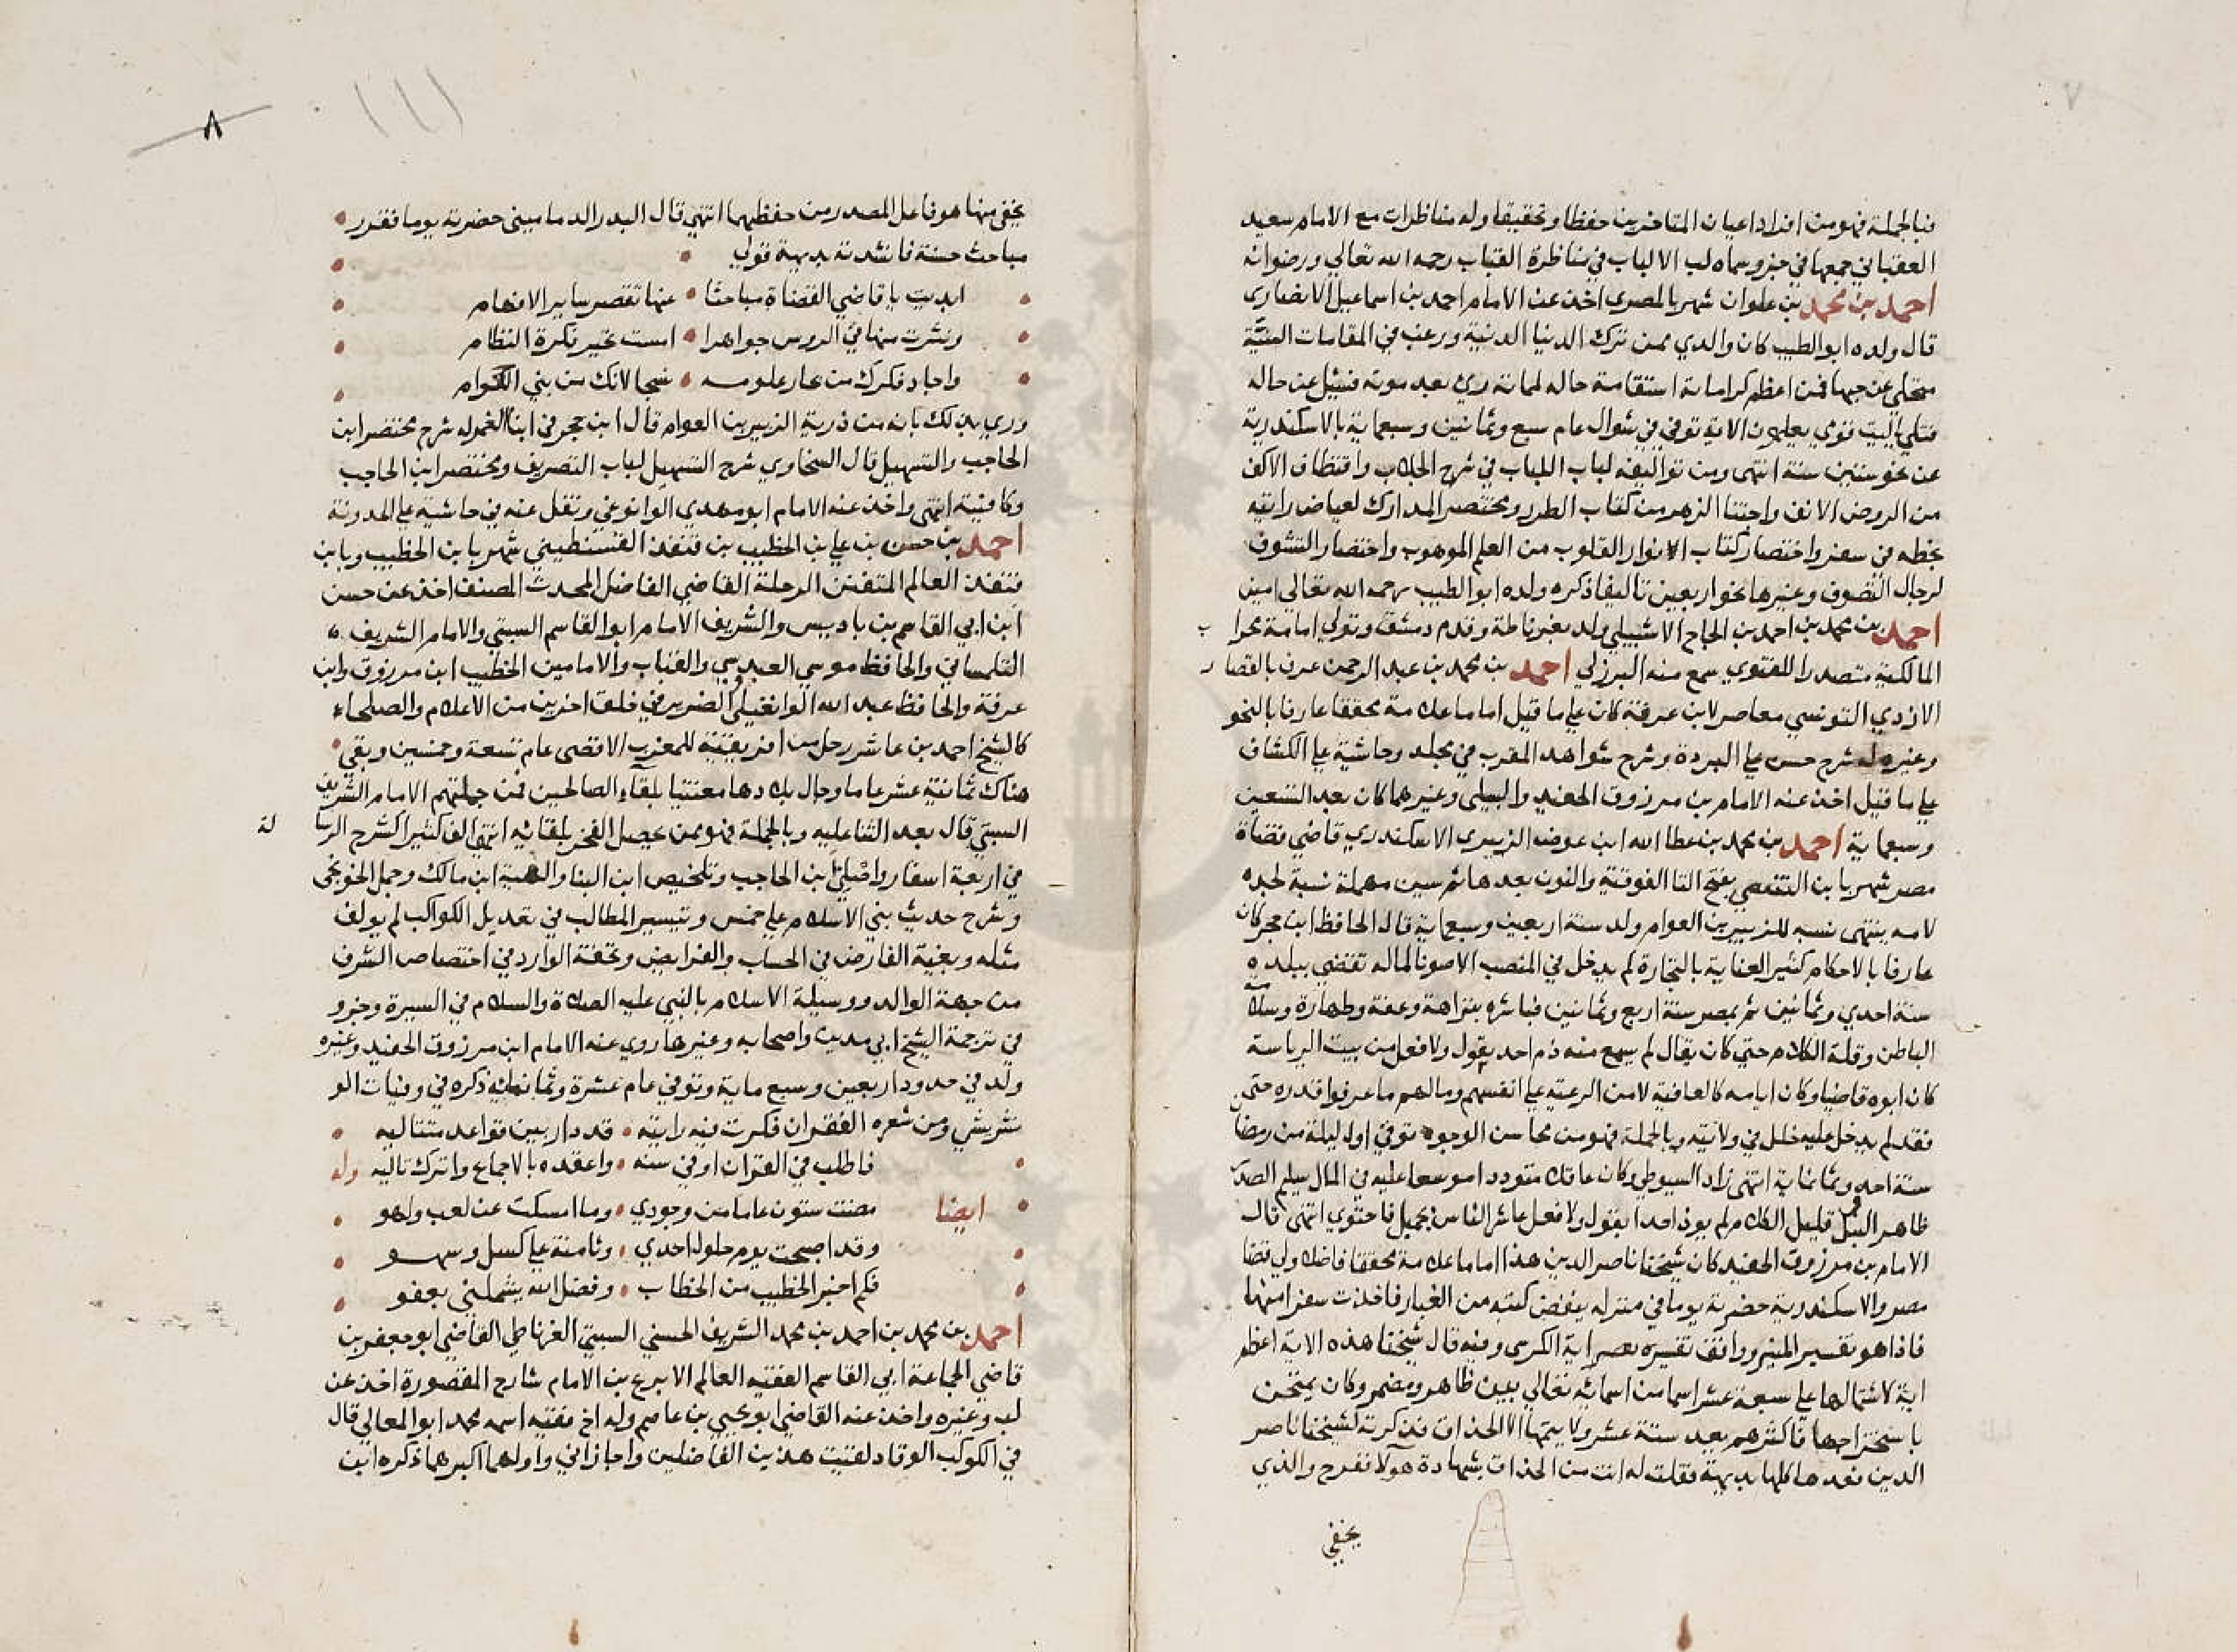 ٧
فبالجملة فهو من افراد اعيان المتاخرين حفظا وتحقيقا وله مناظرات مع الامام سعيد
العقباني جمعها في جزو سماه لب الالباب في مناظرة القباب رحمه الله تعالي ورضوانه
احمد بن محمد بن علوان شهر بالمصري اخذ عن الامام احمد بن اسماعيل الانصاري
قال ولده ابو الطيب كان والدي ممن ترك الدنيا الدنية ورغب في المقامات العلية
متخلي عن حبها فمن اعظم كراماته استقامة حاله لماته ري بعد موته فسئل عن حاله
فتلي ياليت قومي يعلمون الاية توفي في شوال عام سبع وثمانين وسبعماية بالاسكندرية
عن نحو ستين سنة انتهى ومن تواليفه لباب اللباب في شرح الجلاب واقتطاف الاكف
من الروض الانف واجتنا الزهر من كتاب الطرر ومختصر المدارك لعياض رايته
بخطه في سفر واختصار كتاب الانوار القلوب من العلم الموهوب واختصار التشوف
لرجال التصوف وغيرها نحو اربعين تاليفا ذكره ولده ابو الطيب رحمه الله تعالي امين
احمد بن محمد بن احمد بن الحاج الاشبيلي ولد بغرناطة وقدم دمشق وتولي امامة محراب
المالكية متصدرا للفتوي سمع منه البرزلي احمد بن محمد بن عبد الرحمن عرف بالقصار
الازدي التونسي معاصر لابن عرفة كان علي ما قيل اماما علامة محققا عارفا بالنحو
وغيره له شرح حسن علي البردة وشرح شواهد المقرب في مجلد وحاشية علي الكشاف
علي ما قيل اخذ عنه الامام بن مرزوق الحفيد والبسيلي وغيرهما كان بعد التسعين
وسبعماية احمد بن محمد بن عطا الله ابن عوض الزبيري الاسكندري قاضي قضاة
مصر شهر بابن التنسي بفتح التا الفوقية والنون بعدها ثم سين مهملة نسبة لجده
لامه ينتهى نسبه للزبير بن العوام ولد سنة اربعين وسبعماية قال الحافظ ابن حجر كان
عارفا بالاحكام كثير العناية بالتجارة لم يدخل في المنصب الا صونا لماله تقضي ببلده
سنة احدي وثمانين ثم بمصر سنة اربع وثمانين فباشره بنزاهة وعفة وطهارة وسلامة
الباطن وقلة الكلام حتي كان يقال لم يسمع منه ذم احد بقول ولا فعل من بيت الرياسة
كان ابوه قاضيا وكان ايامه كالعافية لامن الرعية علي انفسهم ومالهم ما عرفوا قدره حتى
فقد لم يدخل عليه خلل في ولايته وبالجملة فهو من محاسن الوجود توفي اول ليلة من رمضا
سنة احد وثمانماية انتهى زاد السيوطي وكان عاقلا متوددا موسعا عليه في المال سليم الصدر
ظاهر الذيل قليل الكلام لم يوذ احدا بقول ولا فعل عاشر الناس بجميل فاحتوي انتهى قال
الامام بن مرزوق الحفيد كان شيخنا ناصر الدين هذا اماما علامة محققا فاضلا ولي قضا
مصر والاسكندرية حضرته يوما في منزله ينفض كتبه من الغبار فاخذت سفرا منها
فاذا هو تفسير المنير ووافق تفسيره بعصر اية الكرسي وفيه قال شيخنا هذه الاية اعظم
اية لاشتمالها علي سبعة عشر اسما من اسمائه تعالي بين ظاهر ومضمر وكان يمتحن
باستخراجها فاكثرهم يعد ستة عشر ولا يتمها الا الحذاق فذكرته لشيخنا ناصر
الدين فعدها كلها بديهة فقلت له انت من الحذاق بشهادة هولا ففرح والذي
يخفي
٨
يخفي منها هو فاعل المصدر من حفظهما انتهي قال البدر الدماميني حضرته يوما فقرر
مباحث حسنة فانشدته بديهة قولي
ابديت يا قاضي القضاة مباحثا عنها تقصر ساير الافهام
ونشرت منها في الدروس جواهرا امست تحير فكرة النظام
واجاد فكرك من بحار علومه سبحا لانك من بني العوام
وري بذلك بانه من ذرية الزبير بن العوام قال ابن حجر في انبا الغمر له شرح مختصر ابن
الحاجب والتسهيل قال السخاوي شرح التسهيل لباب التصريف ومختصر ابن الحاجب
وكافيته انتهى واخذ عنه الامام ابو مهدي الوانوغي ونقل عنه في حاشيته علي المدونة
احمد بن حسن بن علي بن الخطيب بن قنفذ القسنطيني شهر بابن الخطيب وبابن
قنفذ العالم المتفنن الرحلة القاضي الفاضل المحدث المصنف اخذ عن حسن
ابن ابي القاسم بن باديس والشريف الامام ابو القاسم السبتي والامام الشريف
التلمساني والحافظ موسي العبدوسي والقباب والامامين الخطيب ابن مرزوق وابن
عرفة والحافظ عبد الله الوانغيلي الضرير في خلق اخرين من الاعلام والصلحاء
كالشيخ احمد بن عاشر رحل من افريقية للمغرب الاقصى عام تسعة وخمسين وبقي
هناك ثمانية عشر عاما وجال بلادها معتنيا بلقاء الصالحين فمن جملتهم الامام الشريف
السبتي قال بعد الثنا عليه وبالجملة فهو ممن يحصل الفخر بلقائه انتهى الف كثيرا كشرح الرسا لة
في اربعة اسفار واصلي ابن الحاجب وتلخيص ابن البنا والفية ابن مالك وجمل الخونجي
وشرح حديث بني الاسلام علي خمس وتيسير المطالب في تعديل الكواكب لم يولف
مثله وبغية الفارض في الحساب والفرايض وتحفة الوارد في اختصاص الشرف
من جهة الوالد ووسيلة الاسلام بالنبي عليه الصلاة والسلام في السيرة وجزو
في ترجمة الشيخ ابي مدين واصحابه وغيرها روي عنه الامام ابن مرزوق الحفيد وغيره
ولد في حدود اربعين وسبع ماية وتوفي عام عشرة وثمانماية ذكره في وفيات الو
نشريشي ومن شعره الفقر ان فكرت فيه رايته قد دار بين قواعد متتاليه
فاطلب في القران او في سنه واعقده بالاجماع واترك تاليه وله
ايضا مضت ستون عاما من وجودي وما امسكت عن لعب ولهو
وقد اصبحت يوم حلول احدي وثامنة علي كسل وسهو
فكم اخبر الخطيب من الخطاب وفضل الله يشملني بعفو
احمد بن محمد بن احمد بن محمد الشريف الحسني السبتي الغرناطي القاضي ابو جعفر بن
قاضي الجماعة ابي القاسم الفقيه العالم الابرع بن الامام شارح المقصورة اخذ عن
لب وغيره واخذ عنه القاضي ابو يحيي بن عاصم وله اخ فقيه اسمه محمد ابو المعالي قال
في الكوكب الوقاد لقيت هذين الفاضلين واجازاني واولهما اكبرهما ذكره ابن